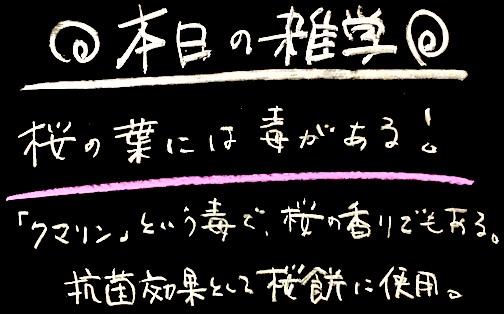 本日の雑学
桜の葉には毒がある!
「クマリン」という毒で、桜の香りでもある。
抗菌効果として桜餅に使用。